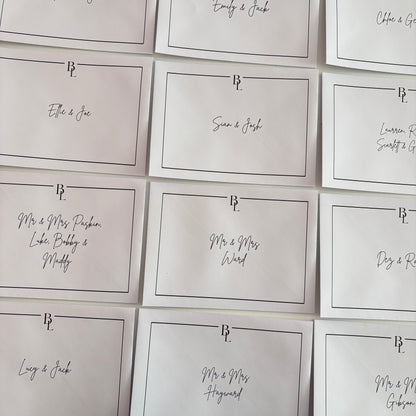 Emily & Jack
Chloe &
BL
Ellie & Joe
BL
Sian & Josh
BL
Lauren
Scarlet &
BL
Mr & Mrs Paskin,
Luke, Bobby &
Maddy
BL
Mr & Mrs
Ward
BL
Dez &
BL
Lucy & Jack
BL
Mr & Mrs
Hayward
BL
Mr &
Gibson